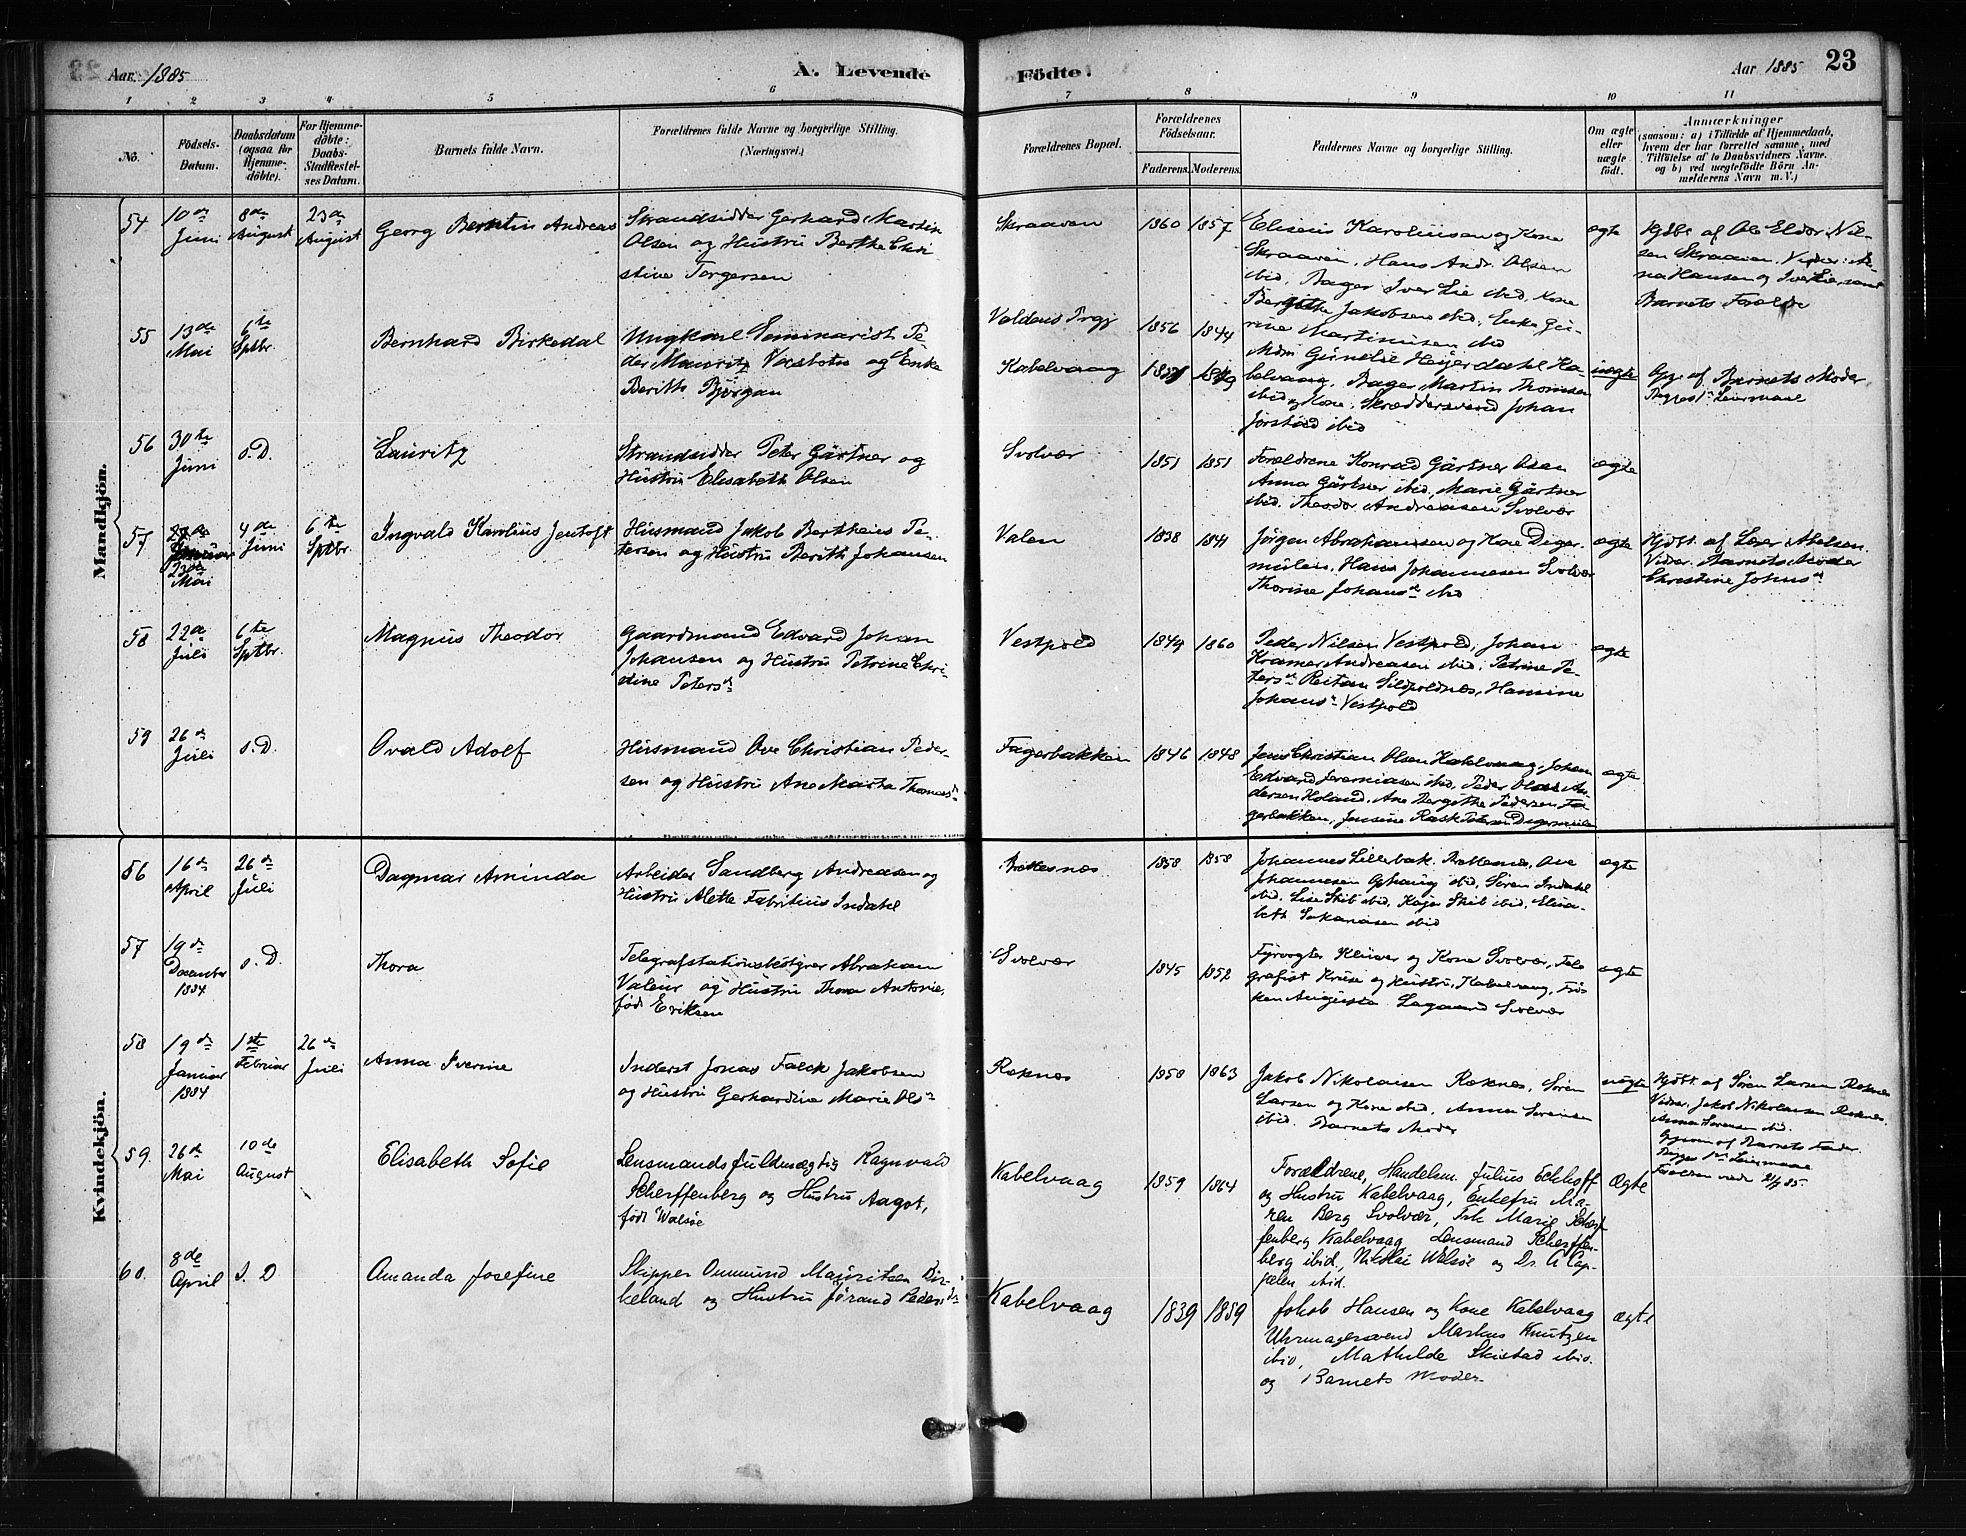 Aar 1885
A. Levende
Födte.
Aar 1885
23
1 2 3 4 5 6 7 8 9 10 11
No.
Födsels-
Datum.
Daabsdatum
(ogsaa for
Hjemme-
döbte).
For Hjemme-
döbte:
Daabs-
Stadfæstel-
ses Datum.
Barnets fulde Navn.
Forældrenes fulde Navne og borgerlige Stilling.
(Næringsvei.)
Forældrenes Bopæl.
Forældrenes
Födselsaar.
Faderens. Moderens.
Faddernes Navne og borgerlige Stilling.
Om ægte
eller
uægte
födt.
Anmærkninger
(saasom: a) i Tilfælde af Hjemmedaab,
hvem der har forrettet samme, med
Tilföielse af to Daabsvidners Navne.
og b) ved uægtefödte Börn An-
melderens Navn m. V.)
Mandkjön.
54
10de
Juni
8de
August
23de
August
Georg Berntin Andreas
Strandsidder Gerhard Martin
Olsen og Hustru Berthe Chri-
stine Torgersen
Skraaven
1860 1857
Eliseus Karoliussen og Kone
Skraaven, Hans Andr. Olsen
ibid, Bager Iver Lie ibid, Kone
Bergitte Jakobsen ibid, Enke Gu-
rine Martinusen ibid
ægte
Hjdbt af Ole Eldor Nil-
sen Skraaven. Vidner: An-
na Hansen og Iver Lie, samt
Barnets Forældre
55
13de
Mai
6te
Sptbr.
Bernhard Birkedal
Ungkarl Seminarist Pe-
der Mauritz Vasbotn og Enke
Berith Björgan
Valdens Prgj
Kabelvaag
1856 1844
1851 1849
Mdm Gunelie Heyerdahl Ka-
belvaag, Bager Martin Thomsen
ibid og Kone, Skræddersvend Johan
Jorstad ibid
uægte
Opg. af Barnets Moder
Begges 1ste Leiermaal
56
30te
Juni
s. D.
Lauritz
Strandsidder Peter Gärtner og
Hustru Elisabeth Olsen
Svolvær
1851 1851
Forældrene Konrad Gärtner Osan
Anna Gärtner ibid, Marie Gärtner
ibid. Theodor Andreassen Svolvær
ægte
57
23de
Mai
4de
Juni
6te
Sptbr.
Ingvald Karolius Jentoft
Husmand Jakob Bertheus Pe-
tersen og Hustru Berith Johansen
Valen
1838 1841
Jörgen Abrahamsen og Kone Diger-
mulen, Hans Johannesen Svolvær
Thorine Johansdr ibid
ægte
Hjdbt. af Abelsen.
Vidner. Barnets Moder
Christine Johnsdr
58
22de
Juli
6te
Sptbr.
Magnus Theodor
Gaardmand Edvard Johan
Johansen og Hustru Petrine Chri-
stine Petersdr
Vestpold
1849 1860
Peder Nilsen Vestpold, Johan
Kramer Andreasen ibid, Petrine Pe-
tersdr Reitan Sildpoldnes, Hansine
Johansdr Vestpold
ægte
59
26de
Juli
s. D.
Ovald Adolf
Husmand Ove Christian Peder-
sen og Hustru Ane Marta Thomasdr
Fagerbakken
1846 1848
Jens Christian Olsen Kabelvaag, Johan
Edvard Jeremiasen ibid, Peder Olai An-
dersen Holand, Ane Bergitte Pedersen Fa-
gerbakken, Jensine Rask Petersen Digermulen
ægte
Kvindekjön.
56
16de
April
26de
Juli
Dagmar Aminda
Arbeider Sandberg Andreasen og
Hustru Alette Fabritius Indahl
Brettesnes
1858 1858
Johannes Lillerbak Brettesnes, Ove
Johannesen Ophaug ibid, Sören Indahl
ibid, Lise Skib ibid, Kaja Skib ibid, Elisa-
beth Sakariasen ibid
ægte
57
19de
December
1884
s. D.
Thora
Telegrafstationsbestyrer Abraham
Valeur og Hustru Thora Antonie,
född Eriksen
Svolvær
1845 1852
Fyrvogter Klüver og Kone Svolvær, Tele-
grafist Kruse og Hustru, Kabelvaag, Frö-
ken Augusta Lagaard Svolvær
ægte
58
19de
Januar
1884
1ste
Februar
26de
Juli
Anna Iverine
Inderst Jonas Falck Jakobsen
og Hustru Gerhardine Marie Olsdr
Reknes
1858 1863
Jakob Nikolaisen Reknes, Sören
Larsen og Kone ibid, Anna Sörensen
ibid. Barnets Moder
uægte
Hjdbt. af Sören Larsen Reknes
Vidner. Jakob Nikolaisen Reknes,
Anna Sörensen ibid.
Opgivn. af Barnets Fader.
Begges 1ste Leiermaal
59.
26de
Mai
10de
August
Elisabeth Sofie
Lensmandsfuldmægtig Ragnvald
Scherffenberg og Hustru Aagot,
född Walsöe
Kabelvaag
1859 1864
Forældrene, Handelsm. Julius Eckhoff
og Hustru Kabelvaag, Enkefru Ma-
ren Berg Svolvær, Frk Marie Scherf-
fenberg Kabelvaag Lensmand Scherffen-
berg ibid, Nikolai Walsöe og Dr. A Cap-
pelen ibid.
Ægte
60.
8de
April
s. D
Amanda Josefine
Skipper Ommund Mauritsen Bir-
keland og Hustru Jörand Pedersdr
Kabelvaag
1839 1859
Jakob Hansen og Kone Kabelvaag
Uhrmagersvend Markus Knutzen
ibid, Mathilde Skistad ibid.
og Barnets Moder
ægte